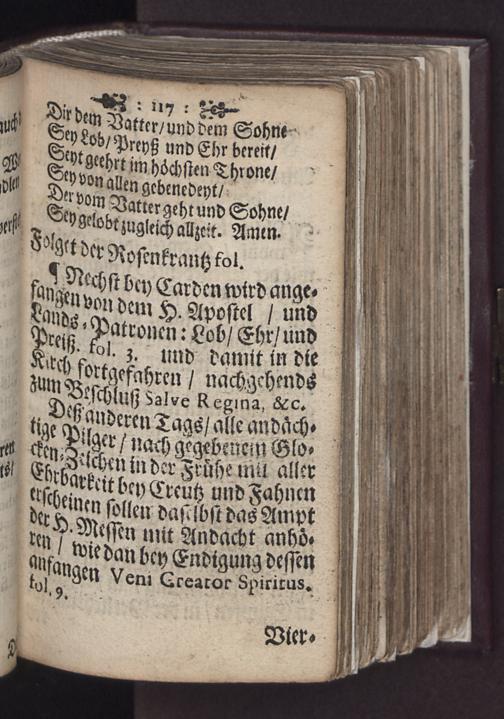 : 117 :
Dir dem Vatter/ und dem Sohne
Sey Lob/ Preyß und Ehr bereit/
Seyt geehrt im höchsten Throne/
Sey von allen gebenedeyt/
Der vom Vatter geht und Sohne/
Sey gelobt zugleich allzeit. Amen.
Folget der Rosenkrantz fol.
¶ Nechst bey Carden wird ange-
fangen von dem H. Apostel / und
Lands-Patronen: Lob/ Ehr/ und
Preiß. fol. 3. und damit in die
Kirch fortgefahren / nachgehends
zum Beschluß Salve Regina, &c.
Deß anderen Tags/ alle andäch-
tige Pilger / nach gegebenem Glo-
cken-Zeichen in der Frühe mit aller
Ehrbarkeit bey Creutz und Fahnen
erscheinen sollen daselbst das Ampt
der H. Messen mit Andacht anhö-
ren / wie dan bey Endigung dessen
anfangen Veni Creator Spiritus.
fol. 9.
Vier-